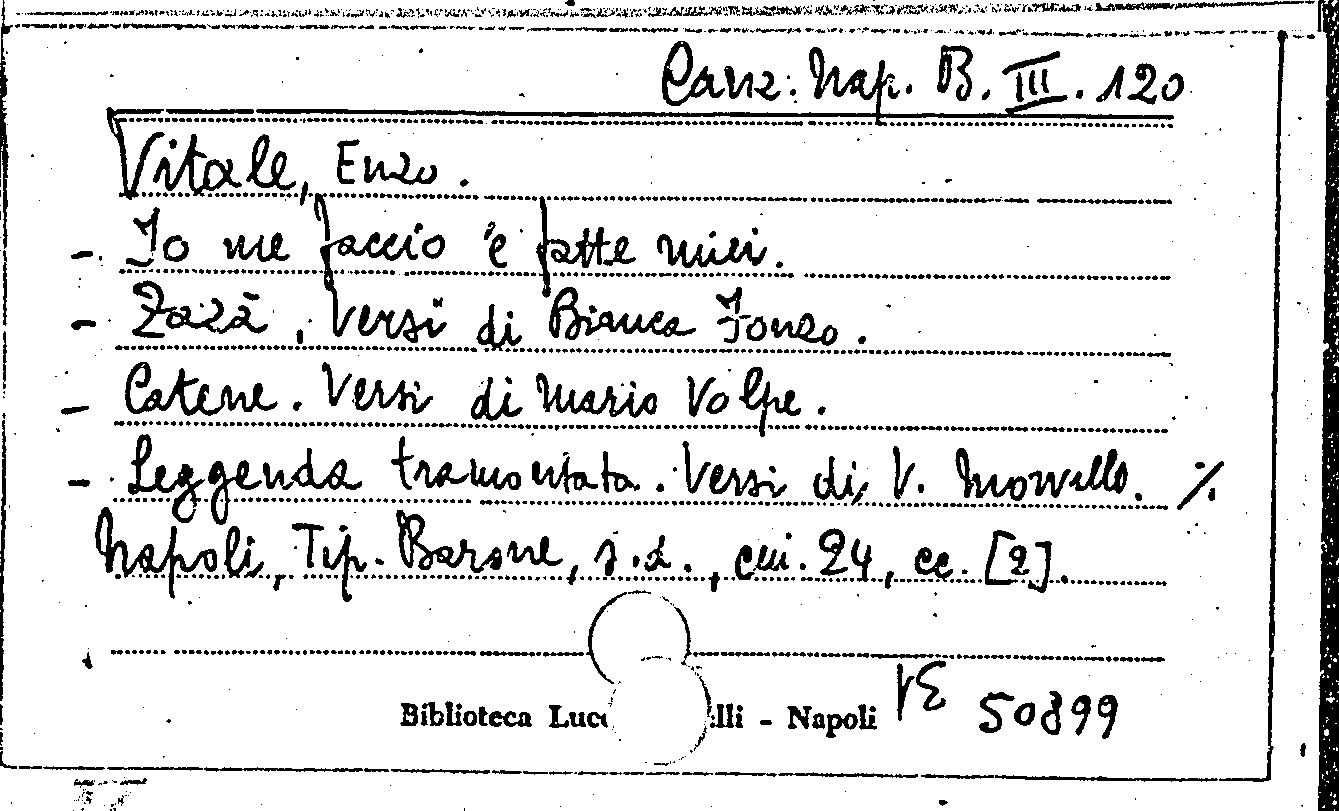 Canz. Nap. B. III. 120
Vitale, Enzo.
- Io me faccio 'e fatte miei.
- Zazà, Versi di Bianca Fonzo.
- Catene. Versi di Mario Volpe.
- Leggenda tramontata. Versi di V. %
Napoli, Tip. Barone, s.d., cm. 24, cc. [2].
Biblioteca Lucc lli - Napoli
50899